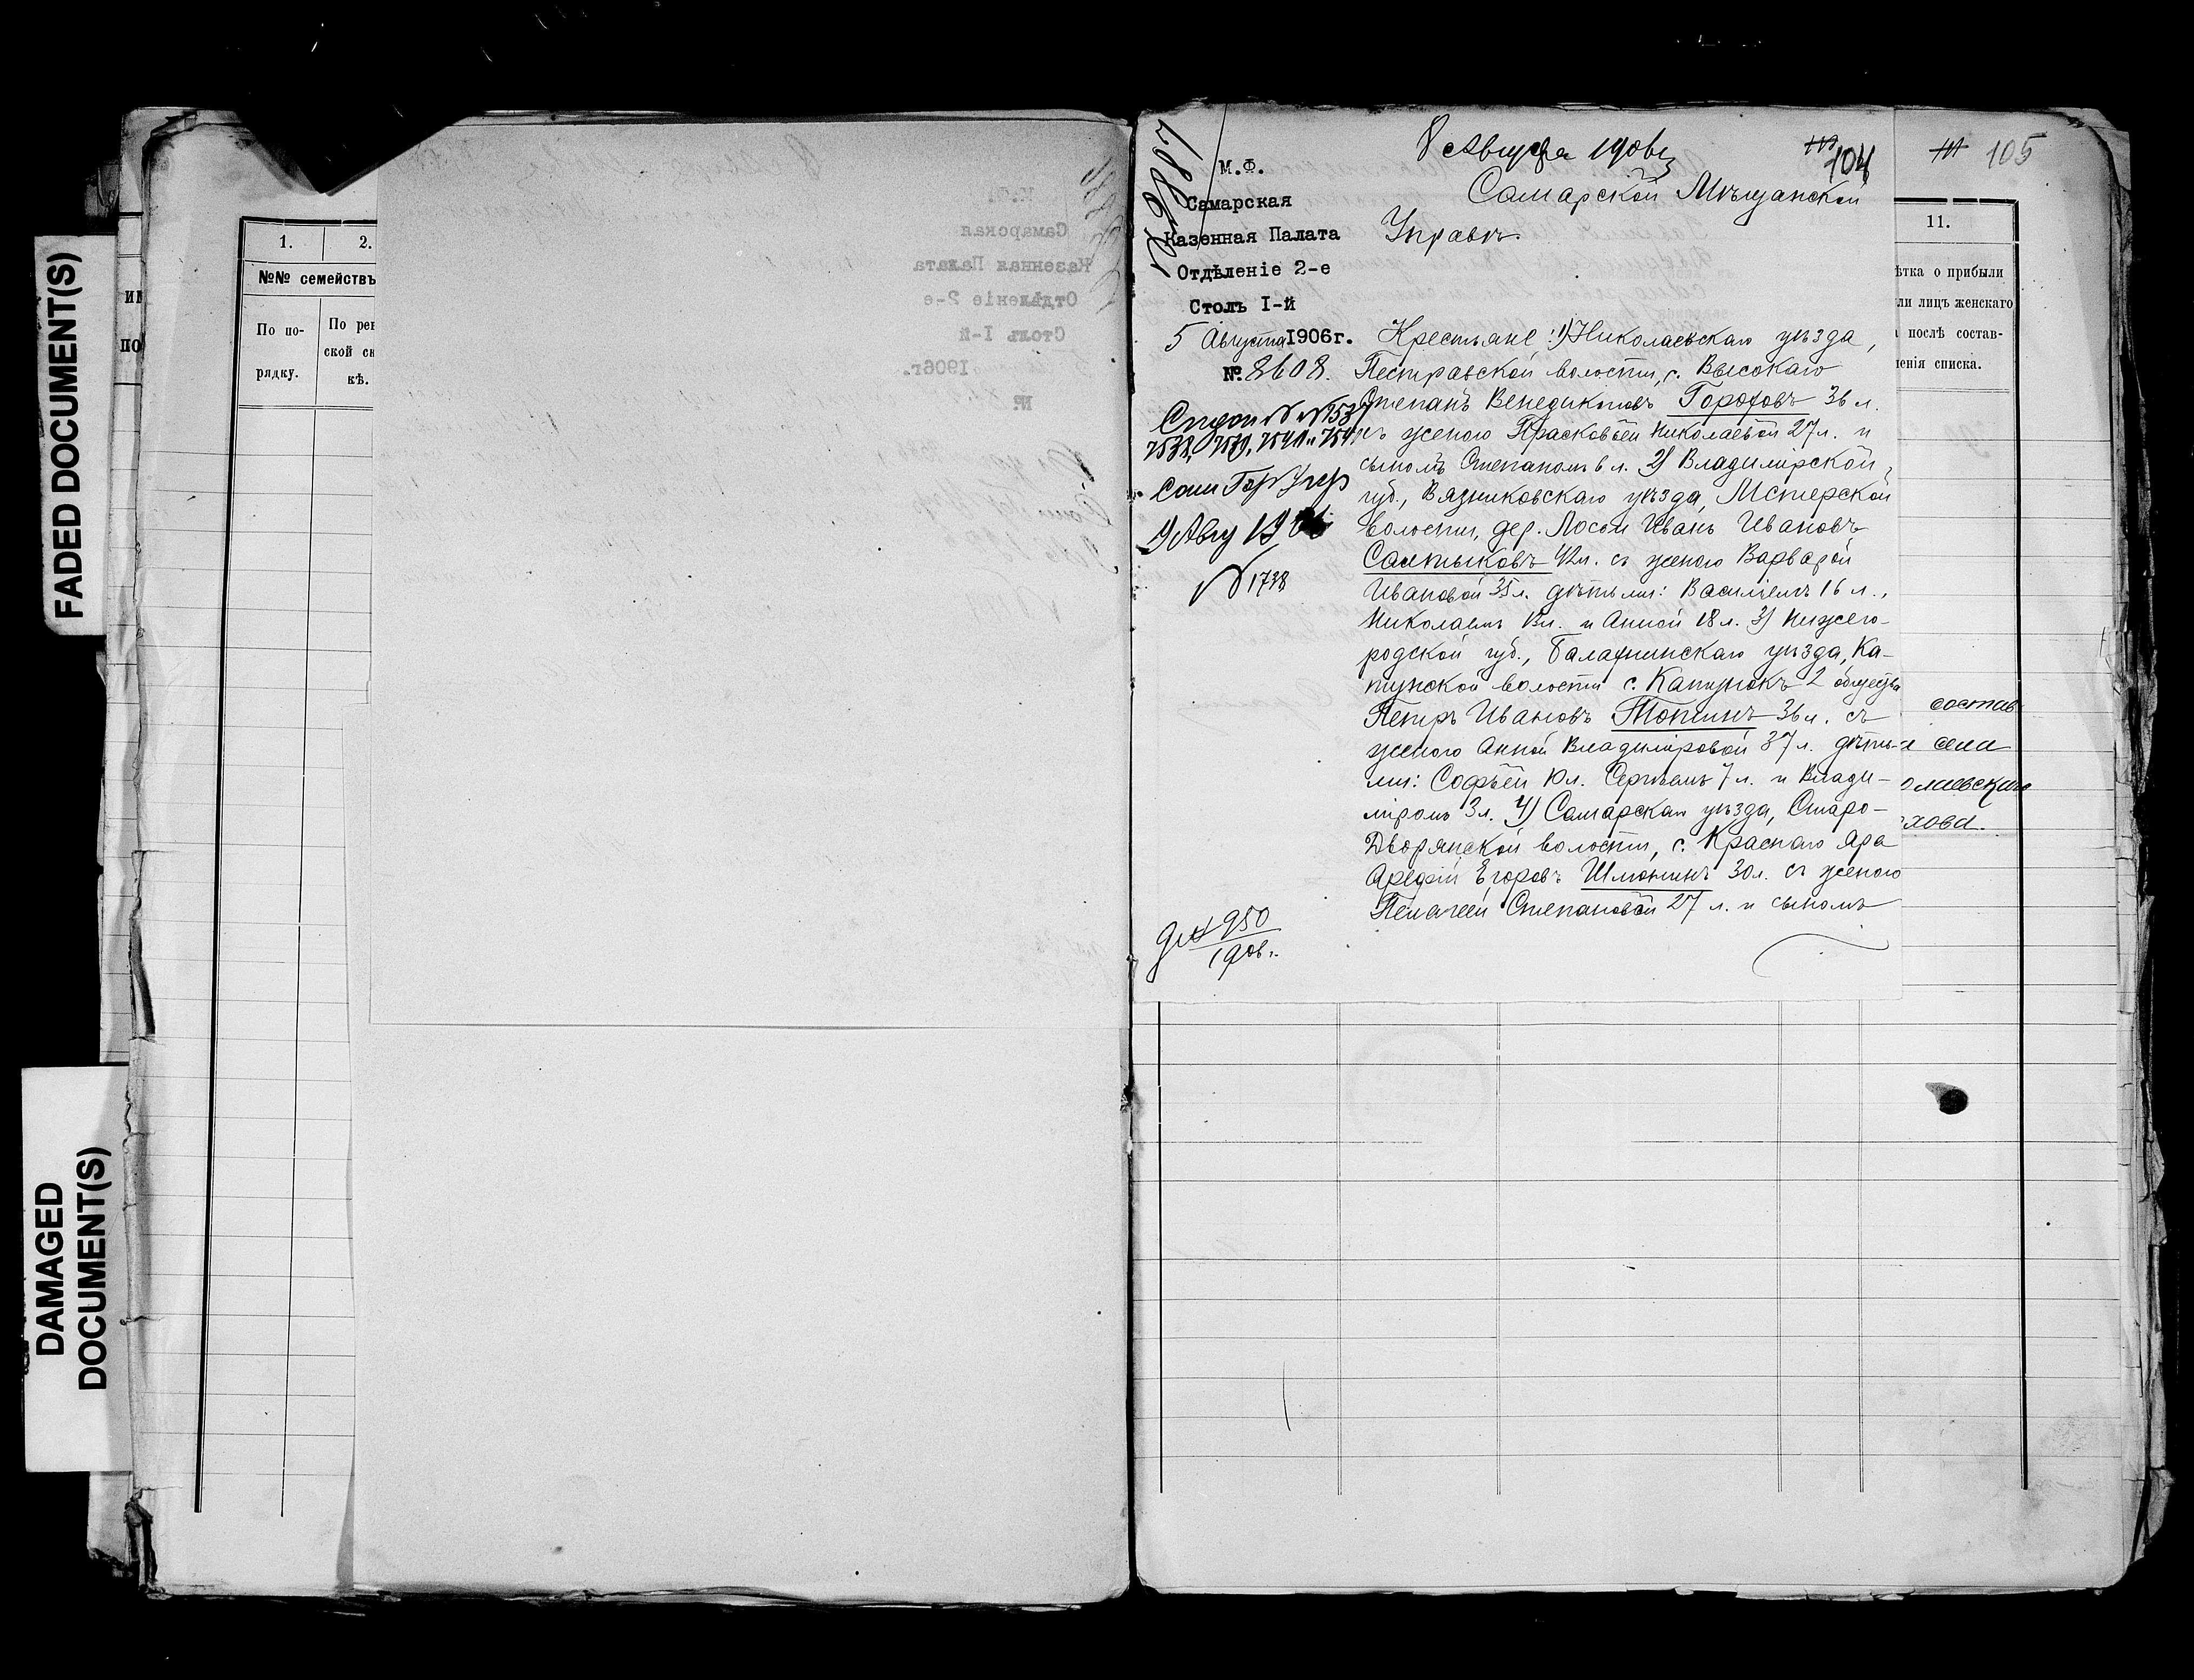 FADED DOCUMENT(S)
DAMAGED
DOCUMENT(S)
1. 2.
№№ семействъ
По по-
рядку.
По рев
ской ск
кѣ.
8 Августа 1906 г
104
105
М.Ф.
Самарская
Казенная Палата
Отдѣленіе 2-е
Столъ I-й
5 Августа 1906г.
№ 8608.
Самарской Мѣщанской
Управѣ.
Крестьяне: 1) Николаевскаго уѣзда,
Пестравской волости, с. Высокаго
Степанъ Венедиктовъ Гороховъ 36 л.
съ женою Прасковьей Николаевой 27 л. и
сыномъ Степаномъ 6 л. 2) Владимірской
губ., Вязниковскаго уѣзда, Мстерской
волости, дер. Лосьи Иванъ Ивановъ
Салтыковъ 42 л. съ женою Варварой
Ивановой 35 л. дѣтьми: Василіемъ 16 л.,
Николаемъ и Анной 18 л. 3) Нижего-
родской губ., Балахнинскаго уѣзда, Ка-
тунской волости с. Катунокъ 2 общества
Петръ Ивановъ 36 л. съ
женою Анной Владиміровой 37 л. дѣть-
ми: Софьей 10 л. Сергѣемъ 7 л. и Влади-
міромъ 3 л. 4) Самарскаго уѣзда, Старо-
Дворянской волости, с. Краснаго Яра
Арефій Егоровъ Шмонинъ 30 л. съ женою
Пелагеей Степановой 27 л. и сыномъ
№ 1738
950
1906 г.
11.
ѣтка о прибыли
ли лицъ женскаго
послѣ состав-
ленія списка.
состав
села
олаевскаго
хова.